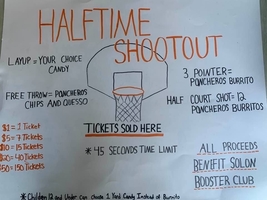 HALFTIME
SHOOTOUT
LAYUP = YOUR CHOICE
CANDY
3 POINTER =
PONCHEROS BURRITO
FREE THROW = PONCHEROS
CHIPS AND QUESO
HALF COURT SHOT = 12
PONCHEROS BURRITOS
$1 = 1 Ticket
$5 = 7 Tickets
$10 = 15 Tickets
$20 = 40 Tickets
$50 = 150 Tickets
TICKETS SOLD HERE
* 45 SECONDS TIME LIMIT
ALL PROCEEDS
BENEFIT SOLON
BOOSTER CLUB
* Children 12 and Under Can Choose 1 Yard Candy Instead of Burrito